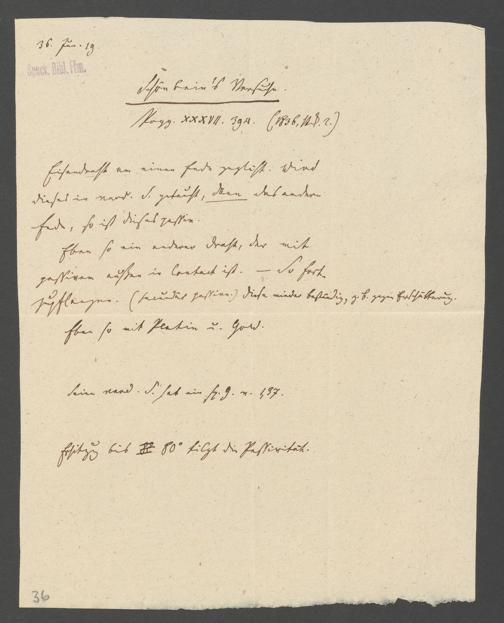 36. Jun. 19.
Senck. Bibl. Ffm.
Schönbein's Versuche.
Pogg. XXXVII. 394. (1836, N. 2.)
Eisendraht an einem Ende geglüht. wird
dieses in verd. S. getaucht, dann das andere
Ende, so ist dieses passiv.
Eben so ein anderer Draht, der mit
passivem außen in Contact ist. — So fort
zupflanzen. (secundär passiv.) Diese minder beständig, z.b. gegen Erschütterung.
Eben so mit Platin u. Gold.
Seine verd. S. hat ein sp. g. v. 1,37.
Erhitzg bis 80° tilgt die Passivität.
36